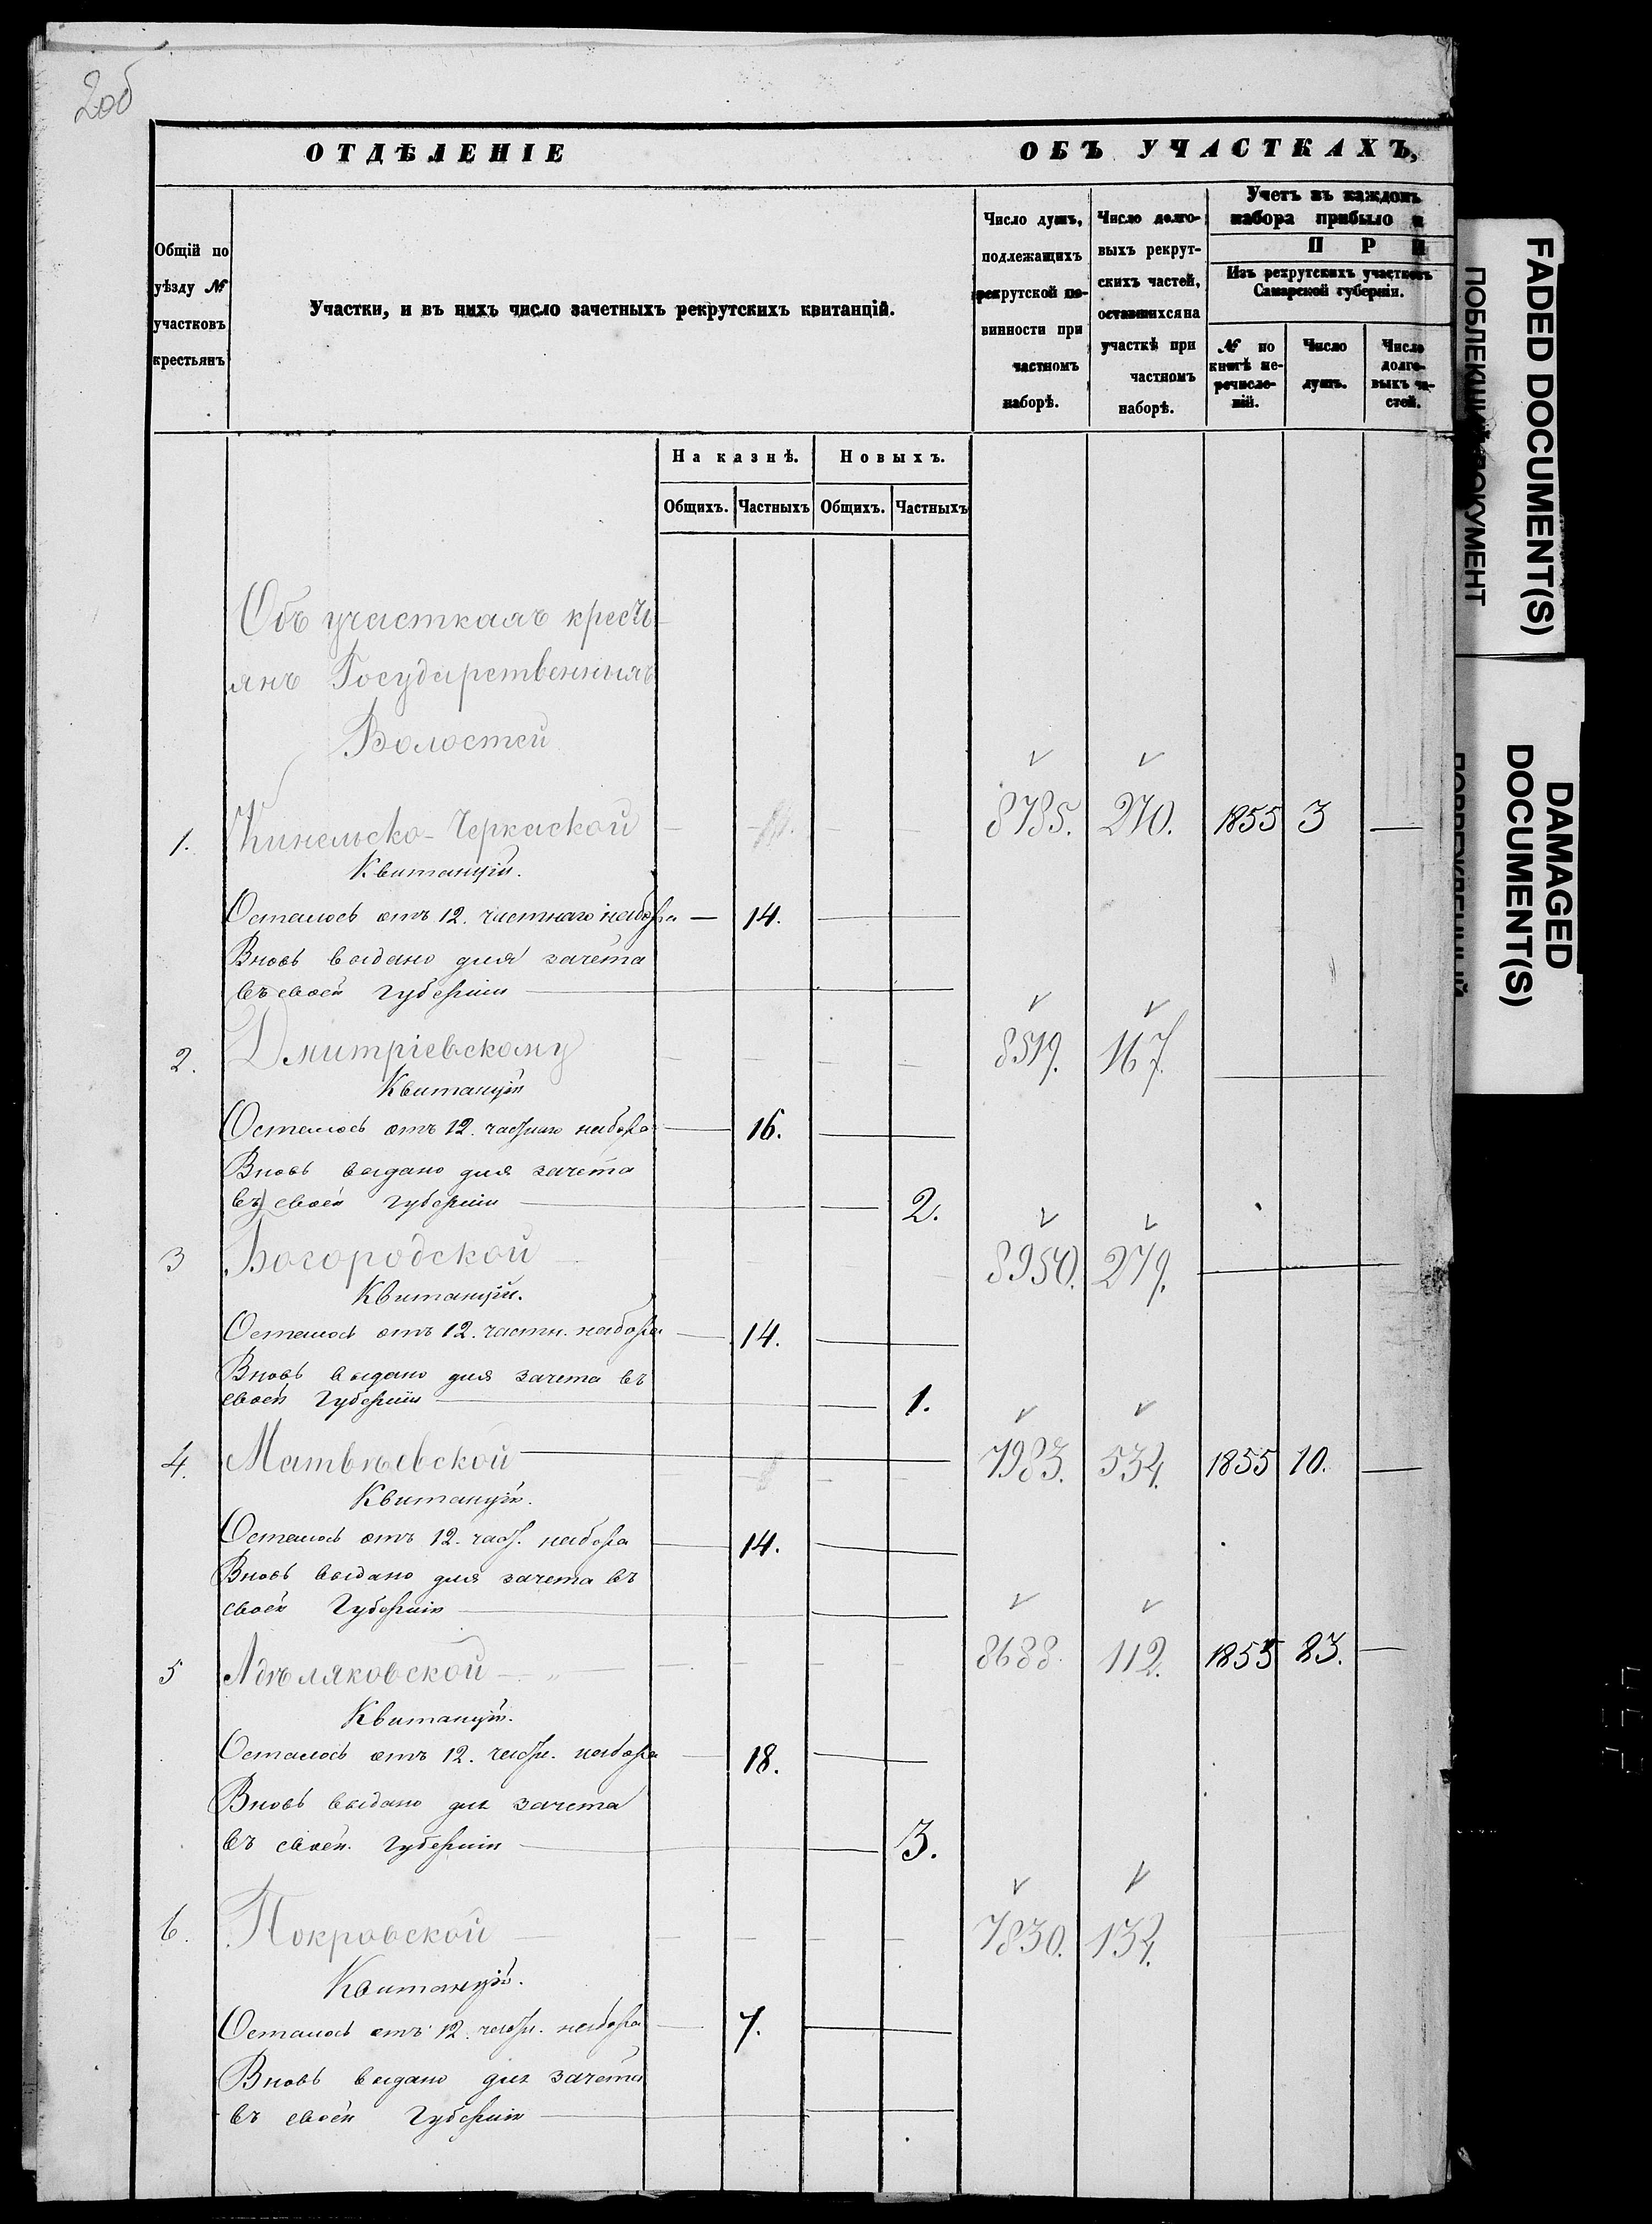 2об
ОТДѢЛЕНІЕ ОБЪ УЧАСТКАХЪ,
Общій по уѣзду № участковъ крестьянъ
Участки, и въ нихъ число зачетныхъ рекрутскихъ квитанцій.
Число душъ, подлежащихъ рекрутской по-винности при частномъ наборѣ.
Число долго-выхъ рекрут-скихъ частей, оставшихся на участкѣ при частномъ наборѣ.
Учетъ въ каждомъ
набора прибыло и
П Р И
Изъ рекрутскихъ участковъ
Самарской губерніи.
№ по книгѣ пе-речисле-ній.
Число душъ.
Число долго-выхъ ча-стей.
На казнѣ. Новыхъ.
Общихъ. Частныхъ Общихъ. Частныхъ
Объ участкахъ кресть
янъ Государственныхъ
Волостей
1. Кинельско-Черкаской — — — 8735. 270. 1855 3 —
Квитанцій.
Осталось отъ 12. частнаго набора — 14. —
Вновь выдано для зачета
въ своей губерніи —
2. Дмитріевскому — — — — 8519. 167. —
Квитанцій
Осталось отъ 12. частнаго набора — 16. —
Вновь выдано для зачета
въ своей губерніи — 2.
3 Богородской — 8950. 279. —
Квитанцій.
Осталось отъ 12. частн. набора — 14. —
Вновь выдано для зачета въ
своей Губерніи — 1.
4. Матвѣевской — 7983. 534. 1855 10. —
Квитанцій.
Осталось отъ 12. част. набора — 14. —
Вновь выдано для зачета въ
своей Губерніи —
5 Абѣляковской — 8688. 112. 1855 83. —
Квитанцій.
Осталось отъ 12. частн. набора — 18. —
Вновь выдано для зачета
въ своей. Губерніи — 3.
6. Покровской — 7830. 134.
Квитанцій.
Осталось отъ 12. частн. набора — 7. —
Вновь выдано для зачета
въ своей Губерніи —
FADED DOCUMENT(S)
ПОБЛЕКШИЙ ДОКУМЕНТ
DAMAGED
DOCUMENT(S)